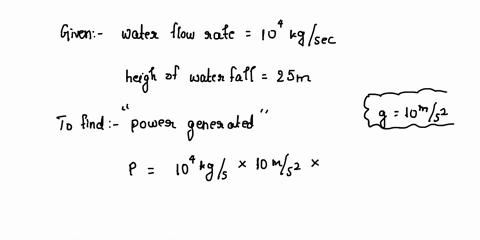 Given:- water flow rate = 10⁴ kg/sec
heigh of water fall = 25m
To find:- "power generated"
g = 10 m/s²
P = 10⁴ kg/s × 10 m/s² ×